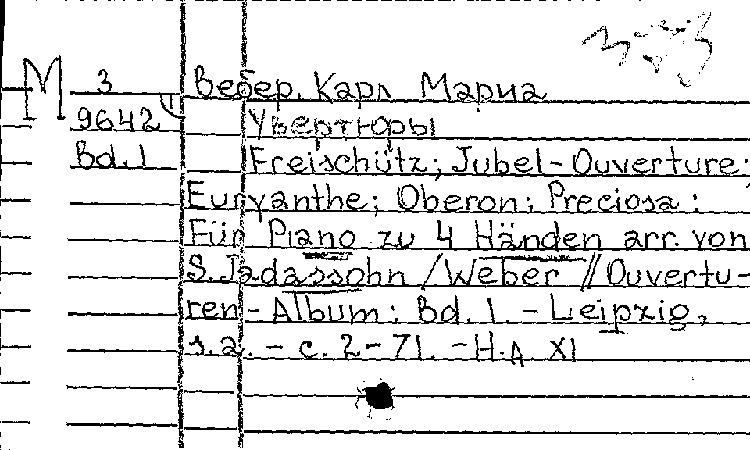 М 3 Вебер, Карл Мариа
9642 Увертюры
Bd. 1 Freischütz; Jubel-Ouverture;
Euryanthe; Oberon; Preciosa:
Für Piano zu 4 Händen arr. von
S. Jadassohn / Weber // Ouvertu-
ren-Album: Bd. 1. - Leipzig,
s.a. - c. 2-71. - Н.д. XI